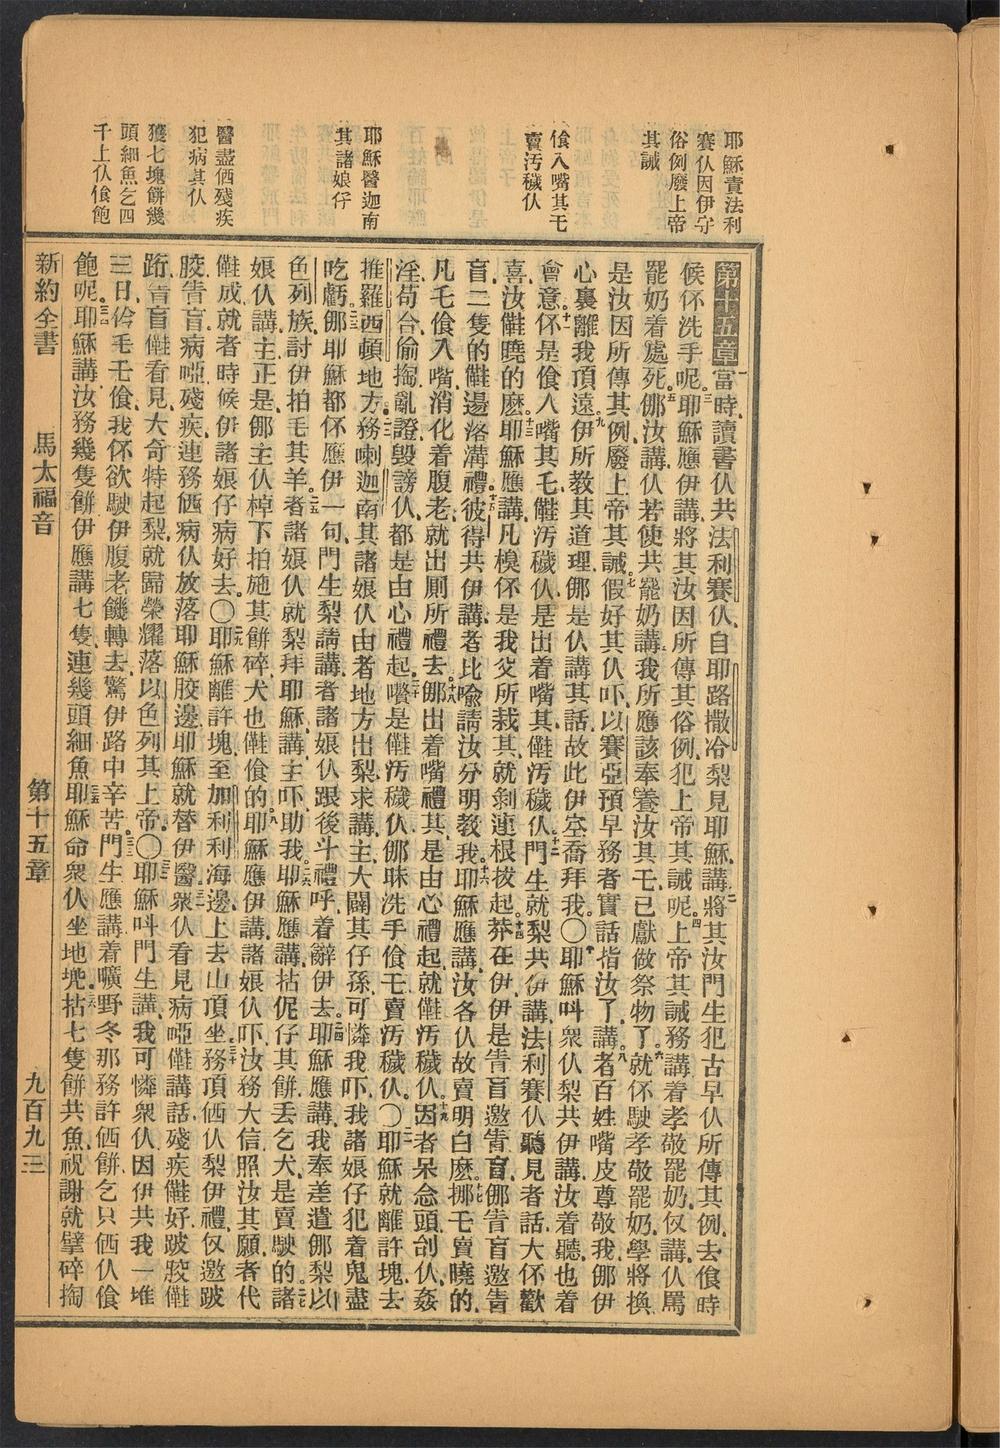 耶穌責法利
賽仈因伊守
俗例廢上帝
其誡
食入嘴其乇
賣汚穢仈
耶穌醫迦南
其諸娘仔
醫盡俩殘疾
犯病其仈
獲七塊餅幾
頭細魚乞四
千上仈食飽
第十五章當時、讀書仈共法利賽仈、自耶路撒冷梨見耶穌、講、二將其汝門生犯古早仈所傳其例、去食時
候伓洗手呢。三耶穌應伊講、將其汝因所傳其俗例、犯上帝其誡呢。四上帝其誡務講、着孝敬罷奶、仅講、仈罵
罷奶着處死。五㑚汝講、仈若使共罷奶講、我所應該奉養汝其乇、已獻做祭物了、六就伓駛孝敬罷奶、學將換
是汝因所傳其例、廢上帝其誡。七假好其仈吓、以賽亞預早務者實話指汝了、講、八者百姓嘴皮尊敬我、㑚伊
心裏離我頂遠。九伊所教其道理、㑚是仈講其話、故此伊空喬拜我。〇十耶穌呌衆仈梨共伊講、汝着聽、也着
會意。十一伓是食入嘴其乇、㒰汚穢仈、是出着嘴其、㒰汚穢仈。十二門生就梨共伊講、法利賽仈聽見者話、大伓歡
喜、汝㒰曉的麽。十三耶穌應講、凡模伓是我父所栽其、就剝連根拔起。十四莽在伊、伊是眚盲邀眚盲、㑚眚盲邀眚
盲、二隻的㒰邊落溝禮。十五彼得共伊講、者比喻請汝分明教我。十六耶穌應講、汝各仈故賣明白麽、十七挪乇賣曉的、
凡乇食入嘴、消化着腹老、就出厠所禮去。十八㑚出着嘴禮其、是由心禮起、就㒰汚穢仈。十九因者呆念頭、刣仈、姦
淫、苟合、偷掏、亂證、毀謗仈、都是由心禮起、二十嚽是㒰汚穢仈、㑚昧洗手食乇、賣汚穢仈。〇二一耶穌就離許塊、去
推羅西頓地方。二二務喇迦南其諸娘仈、由者地方出梨、求講、主、大闢其仔孫、可憐我吓、我諸娘仔犯着鬼盡
吃虧。二三㑚耶穌都伓應伊一句、門生梨請講、者諸娘仈跟後斗禮呼、着辭伊去。二四耶穌應講、我奉差遣㑚梨以
色列族、討伊拍乇其羊。二五者諸娘仈就梨拜耶穌、講、主吓、助我。二六耶穌應講、拈伲仔其餅、丟乞犬、是賣駛的。二七諸
娘仈講、主、正是、㑚主仈棹下拍施其餅碎、犬也㒰食的。二八耶穌應伊講、諸娘仈吓、汝務大信、照汝其願、者代
㒰成就、者時候伊諸娘仔病好去。〇二九耶穌離許塊、至加利利海邊、上去山頂坐。三十務頂俩仈梨伊禮、仅邀跛
骹、眚盲、病啞、殘疾、連務俩病仈、放落耶穌骹邊、耶穌就替伊醫。三一衆仈看見病啞㒰講話、殘疾㒰好、跛骹㒰
跡、眚盲㒰看見、大奇特起梨、就歸榮耀落以色列其上帝。〇三二耶穌呌門生講、我可憐衆仈、因伊共我一堆
三日、伱毛乇食、我伓欲駛伊腹老饑轉去、驚伊路中辛苦。三三門生應講、着曠野冬那務許俩餅、乞只俩仈食
飽呢。三四耶穌講、汝務幾隻餅、伊應講、七隻、連幾頭細魚。三五耶穌命衆仈坐地兠、三六拈七隻餅共魚、祝謝就擘碎、掏
新約全書　馬太福音　第十五章　九百九三